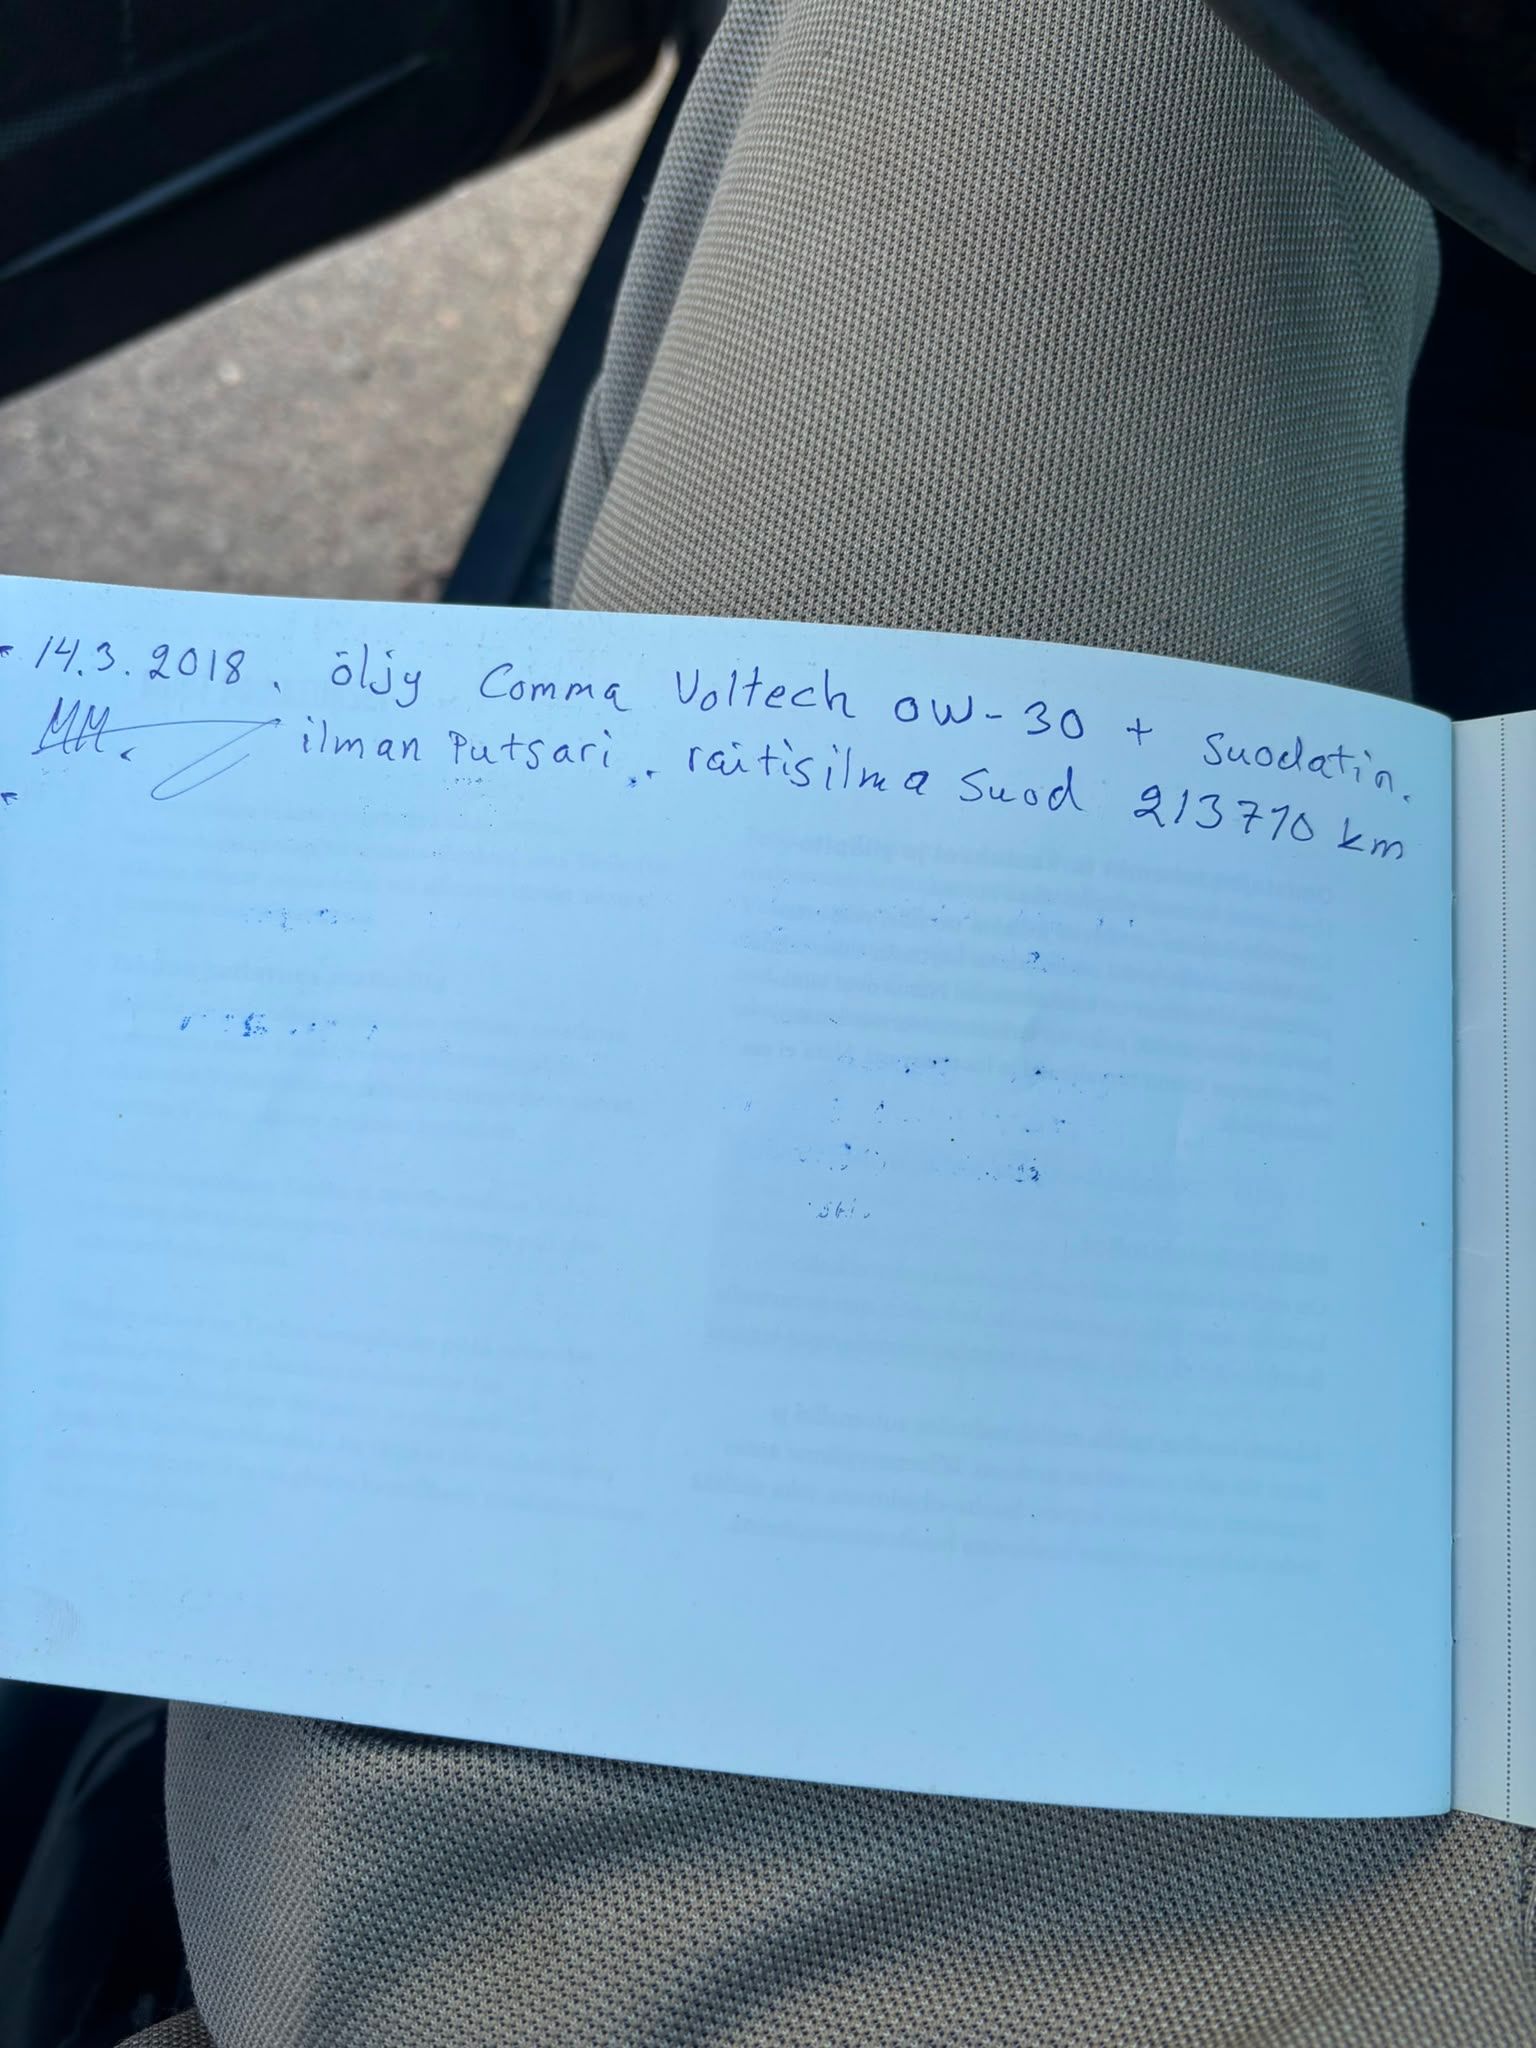 14.3.2018. öljy Comma Voltech OW-30 + Suodatin.
MM. ilman Putsari. raitisilma Suod 213710 km